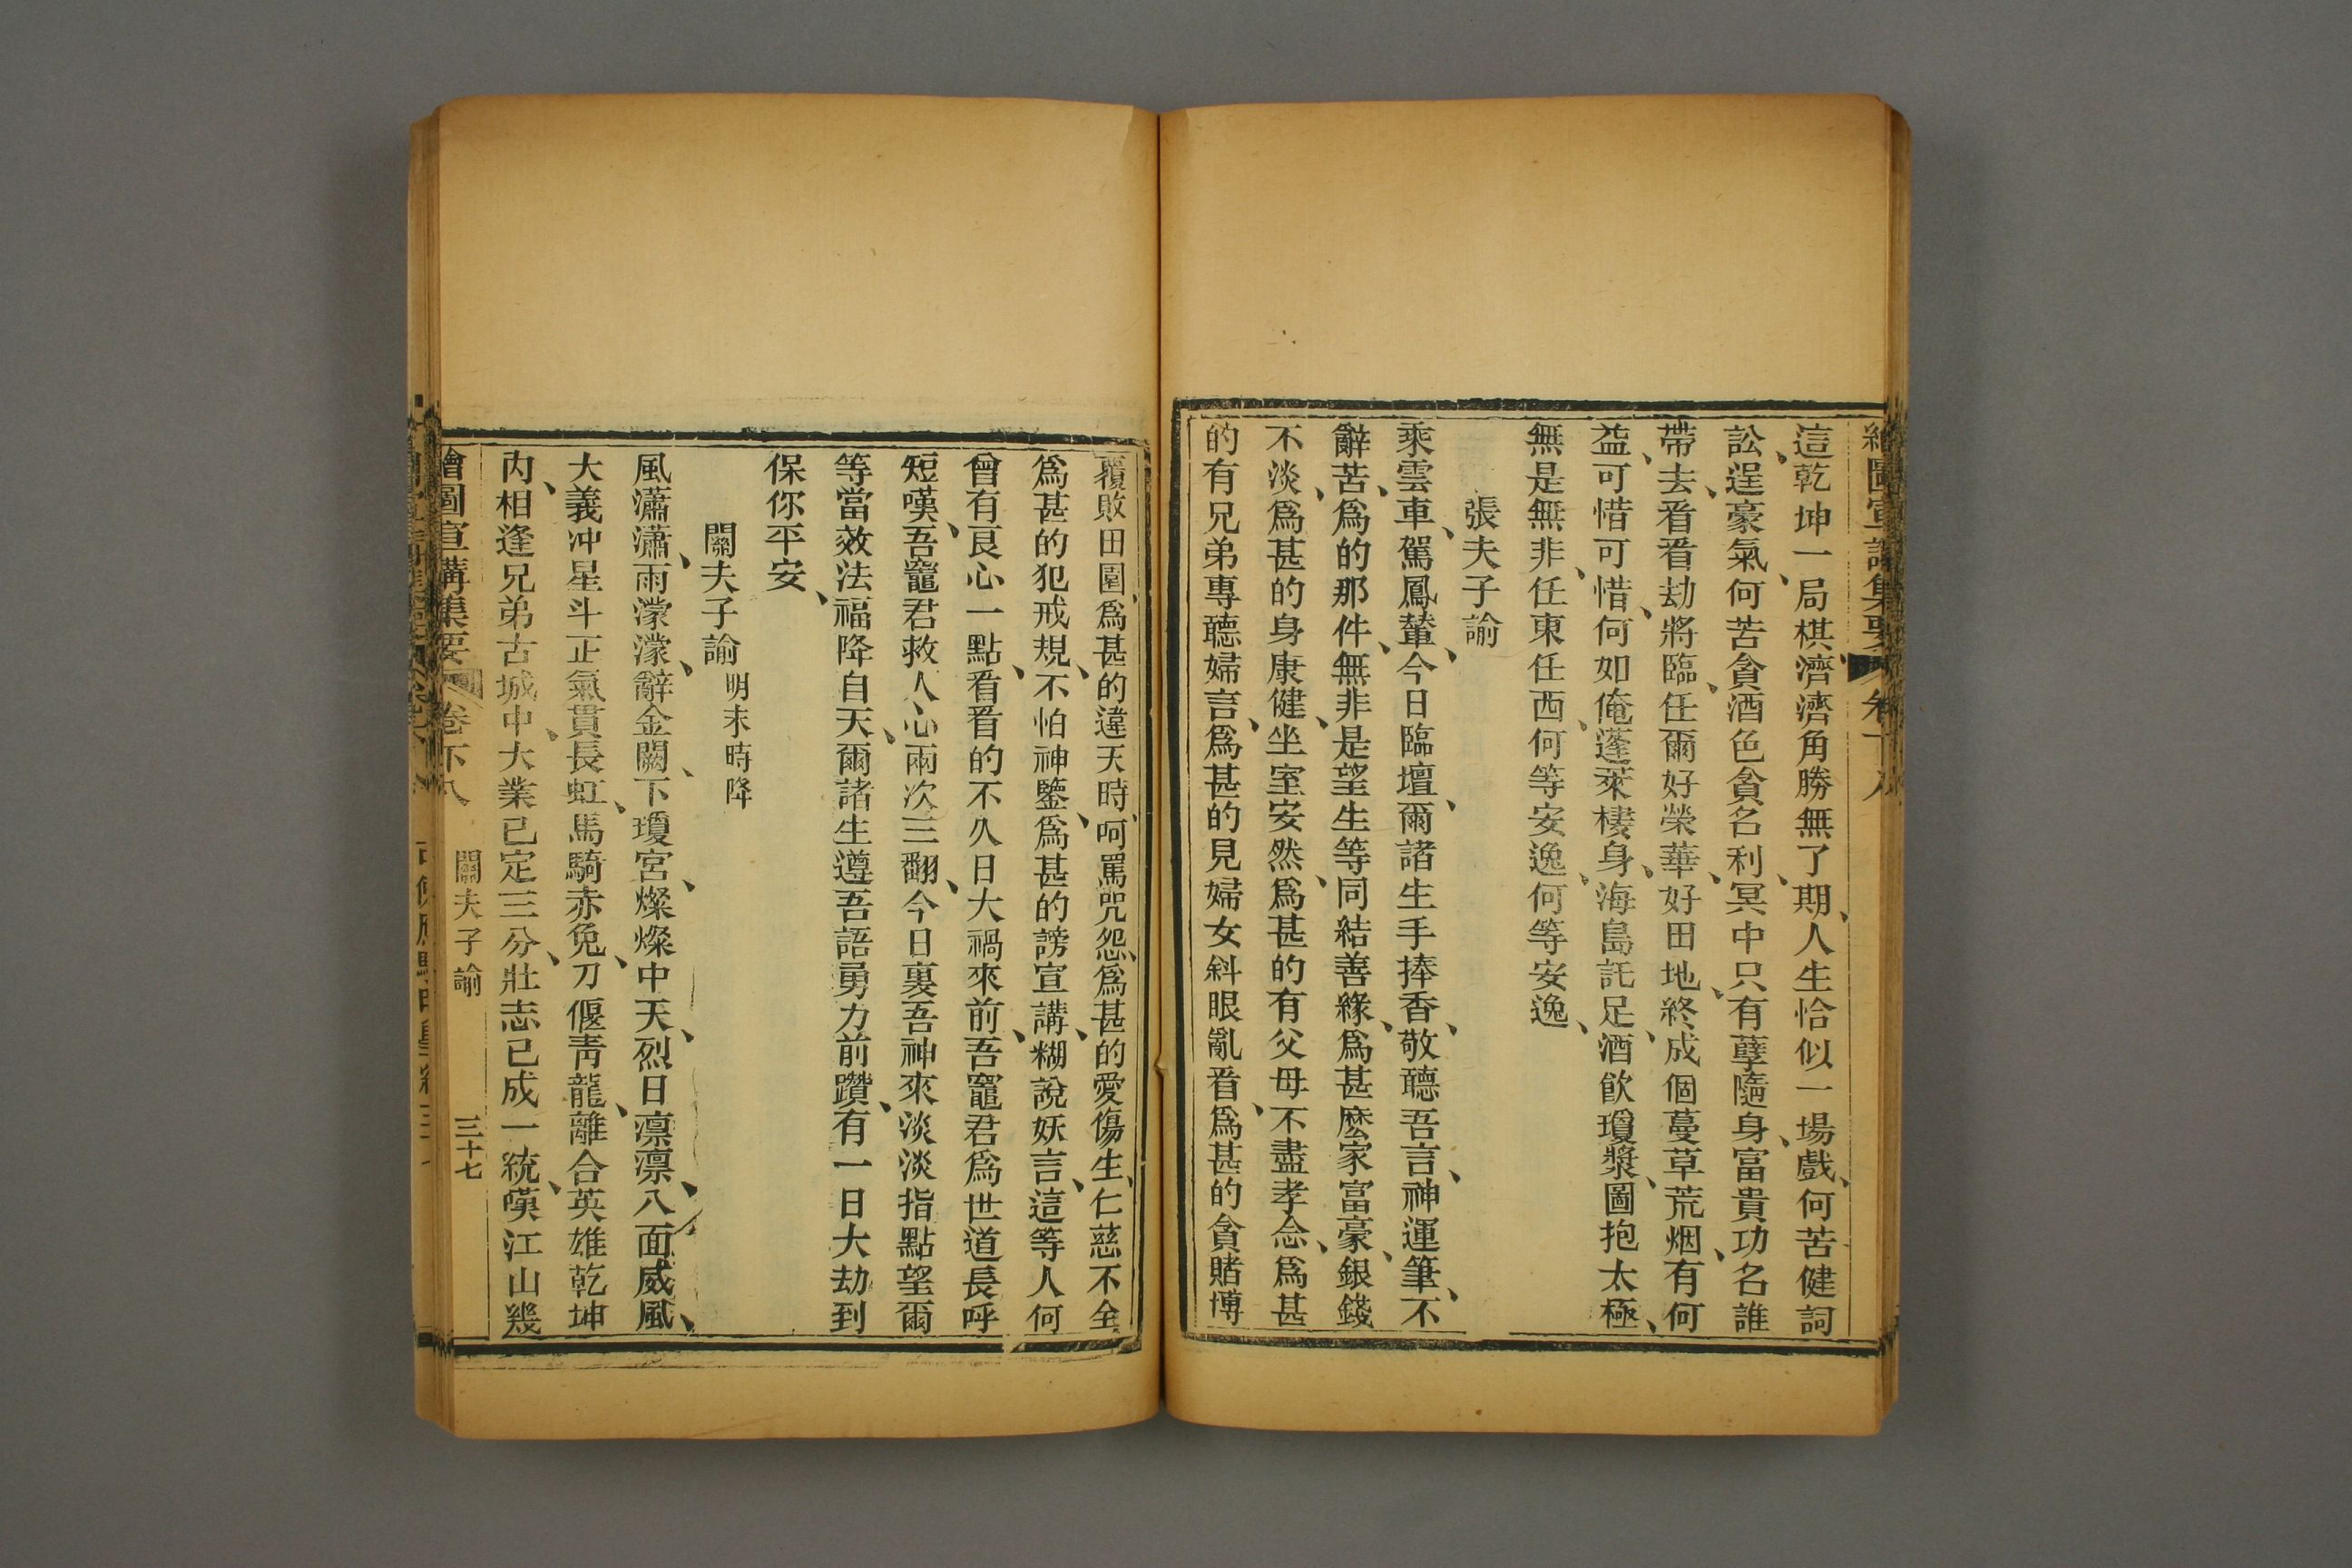 繪圖宣講集要 卷下八
這乾坤一局棋、濟濟角勝無了期、人生恰似一場戲、何苦健詞
訟、逞豪氣、何苦貪酒色貪名利、冥中只有孽隨身、富貴功名誰
帶去、看看劫將臨、任爾好榮華、好田地、終成個蔓草荒烟、有何
益、可惜可惜、何如俺蓬萊棲身、海島託足、酒飮瓊漿、圖抱太極、
無是無非、任東任西、何等安逸、何等安逸、
張夫子諭
乘雲車、駕鳳輦、今日臨壇、爾諸生手捧香、敬聽吾言、神運筆、不
辭苦、爲的那件、無非是望生等同結善緣、爲甚麽家富豪、銀錢
不淡、爲甚的身康健、坐室安然、爲甚的有父母不盡孝念、爲甚
的有兄弟專聽婦言、爲甚的見婦女斜眼亂看、爲甚的貪賭博
覆敗田園、爲甚的違天時、呵罵咒怨、爲甚的愛傷生、仁慈不全
爲甚的犯戒規、不怕神鑒、爲甚的謗宣講、糊說妖言、這等人何
曾有良心一點、看看的不久日大禍來前、吾竈君爲世道長呼
短嘆、吾竈君救人心兩次三翻、今日裏吾神來淡淡指點望爾
等當效法福降自天、爾諸生遵吾語勇力前躦、有一日大劫到
保你平安、
關夫子諭 明未時降
風瀟瀟、雨濛濛、辭金闕、下瓊宮、燦燦中天、烈日凛凛、八面威風、
大義冲星斗正氣貫長虹、馬騎赤兔、刀偃靑龍、離合英雄乾坤
內、相逢兄弟古城中、大業已定三分、壯志已成一統、嘆江山幾
繪圖宣講集要 卷下八 關夫子諭 三十七